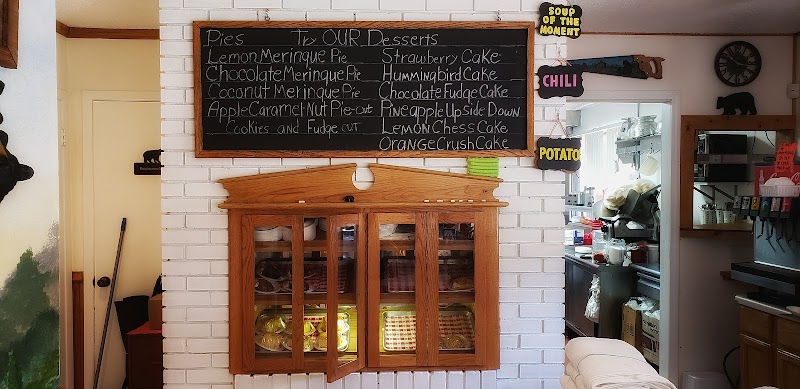 Pies Try OUR Desserts
Lemon Meringue Pie Strawberry Cake
Chocolate Meringue Pie Hummingbird Cake
Coconut Meringue Pie Chocolate Fudge Cake
Apple Caramel Nut Pie-cut Pineapple Upside Down
Cookies and Fudge cut Lemon Chess Cake
Orange Crush Cake
SOUP
OF THE
MOMENT
CHILI
POTATO